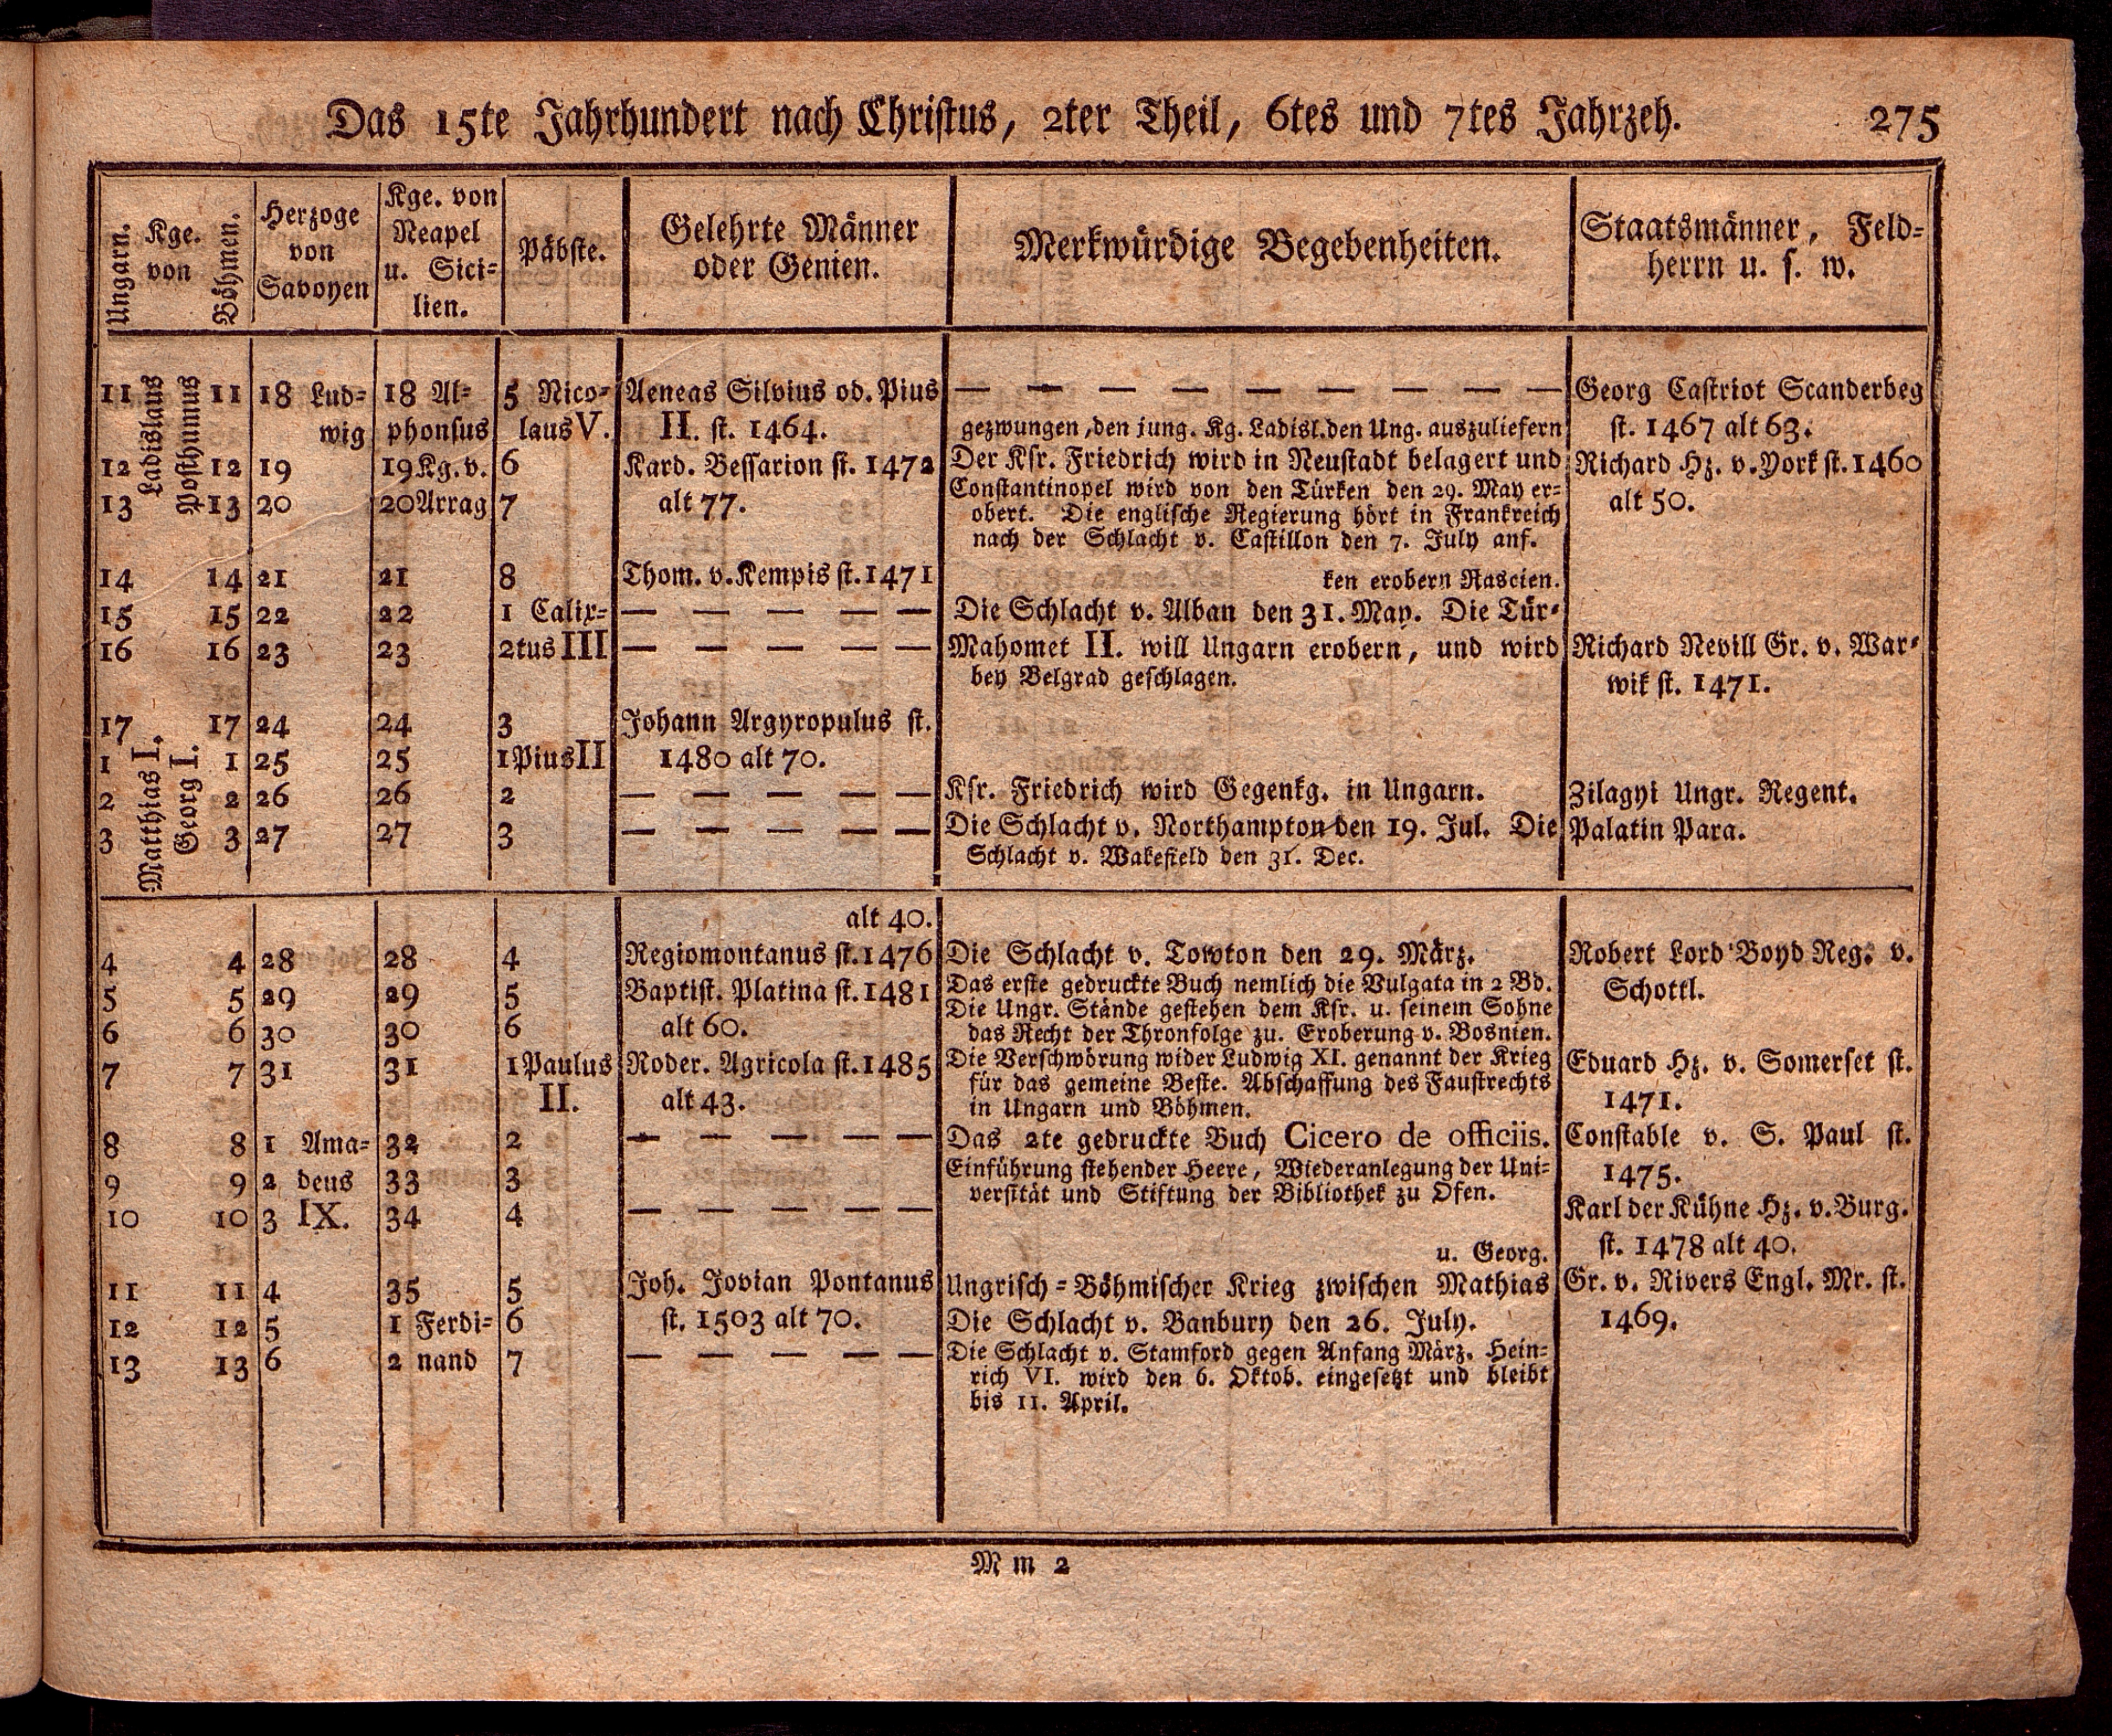 Das 15te Jahrhundert nach Christus, 2ter Theil, 6tes und 7tes Jahrzeh. 275
Ungarn.
Kge.
von
Böhmen.
Herzoge
von
Savoyen
Kge. von
Neapel
u. Sici-
lien.
Päbste.
Gelehrte Männer
oder Genien.
Merkwürdige Begebenheiten.
Staatsmänner, Feld-
herrn u. s. w.
Ladislaus
Posthumus
11 11 18 Lud- 18 Al- 5 Nico- Aeneas Silvius od. Pius — — — — — — — — Georg Castriot Scanderbeg
wig phonsus laus V. II. st. 1464. gezwungen, den jung. Kg. Ladisl. den Ung. auszuliefern st. 1467 alt 63.
12 12 19 19 Kg. v. 6 Kard. Bessarion st. 1472 Der Ksr. Friedrich wird in Neustadt belagert und Richard Hz. v. York st. 1460
13 13 20 20 Arrag 7 alt 77. Constantinopel wird von den Türken den 29. May er- alt 50.
obert. Die englische Regierung hört in Frankreich
nach der Schlacht v. Castillon den 7. July auf.
14 14 21 21 8 Thom. v. Kempis st. 1471 ken erobern Rascien.
15 15 22 22 1 Calix- — — — — — Die Schlacht v. Alban den 31. May. Die Tür-
16 16 23 23 2tus III — — — — — Mahomet II. will Ungarn erobern, und wird Richard Nevill Gr. v. War-
bey Belgrad geschlagen. wik st. 1471.
17 17 24 24 3 Johann Argyropulus st.
Matthias I.
Georg I.
1 1 25 25 1 Pius II 1480 alt 70.
2 2 26 26 2 — — — — — Ksr. Friedrich wird Gegenkg. in Ungarn. Zilagyi Ungr. Regent.
3 3 27 27 3 — — — — — Die Schlacht v. Northampton den 19. Jul. Die Palatin Para.
Schlacht v. Wakefield den 31. Dec.
alt 40.
4 4 28 28 4 Regiomontanus st. 1476 Die Schlacht v. Towton den 29. März. Robert Lord Boyd Reg. v.
5 5 29 29 5 Baptist. Platina st. 1481 Das erste gedruckte Buch nemlich die Vulgata in 2 Bd. Schottl.
Die Ungr. Stände gestehen dem Ksr. u. seinem Sohne
6 6 30 30 6 alt 60. das Recht der Thronfolge zu. Eroberung v. Bosnien.
7 7 31 31 1 Paulus Roder. Agricola st. 1485 Die Verschwörung wider Ludwig XI. genannt der Krieg Eduard Hz. v. Somerset st.
für das gemeine Beste. Abschaffung des Faustrechts
II. alt 43. in Ungarn und Böhmen. 1471.
8 8 1 Ama- 32 2 — — — — — Das 2te gedruckte Buch Cicero de officiis. Constable v. S. Paul st.
9 9 2 deus 33 3 Einführung stehender Heere, Wiederanlegung der Uni- 1475.
versität und Stiftung der Bibliothek zu Ofen.
10 10 3 IX. 34 4 — — — — — Karl der Kühne Hz. v. Burg.
u. Georg. st. 1478 alt 40.
11 11 4 35 5 Joh. Jovian Pontanus Ungrisch-Böhmischer Krieg zwischen Mathias Gr. v. Rivers Engl. Mr. st.
12 12 5 1 Ferdi- 6 st. 1503 alt 70. Die Schlacht v. Banbury den 26. July. 1469.
13 13 6 2 nand 7 — — — — — Die Schlacht v. Stamford gegen Anfang März. Hein-
rich VI. wird den 6. Oktob. eingesetzt und bleibt
bis 11. April.
M m 2